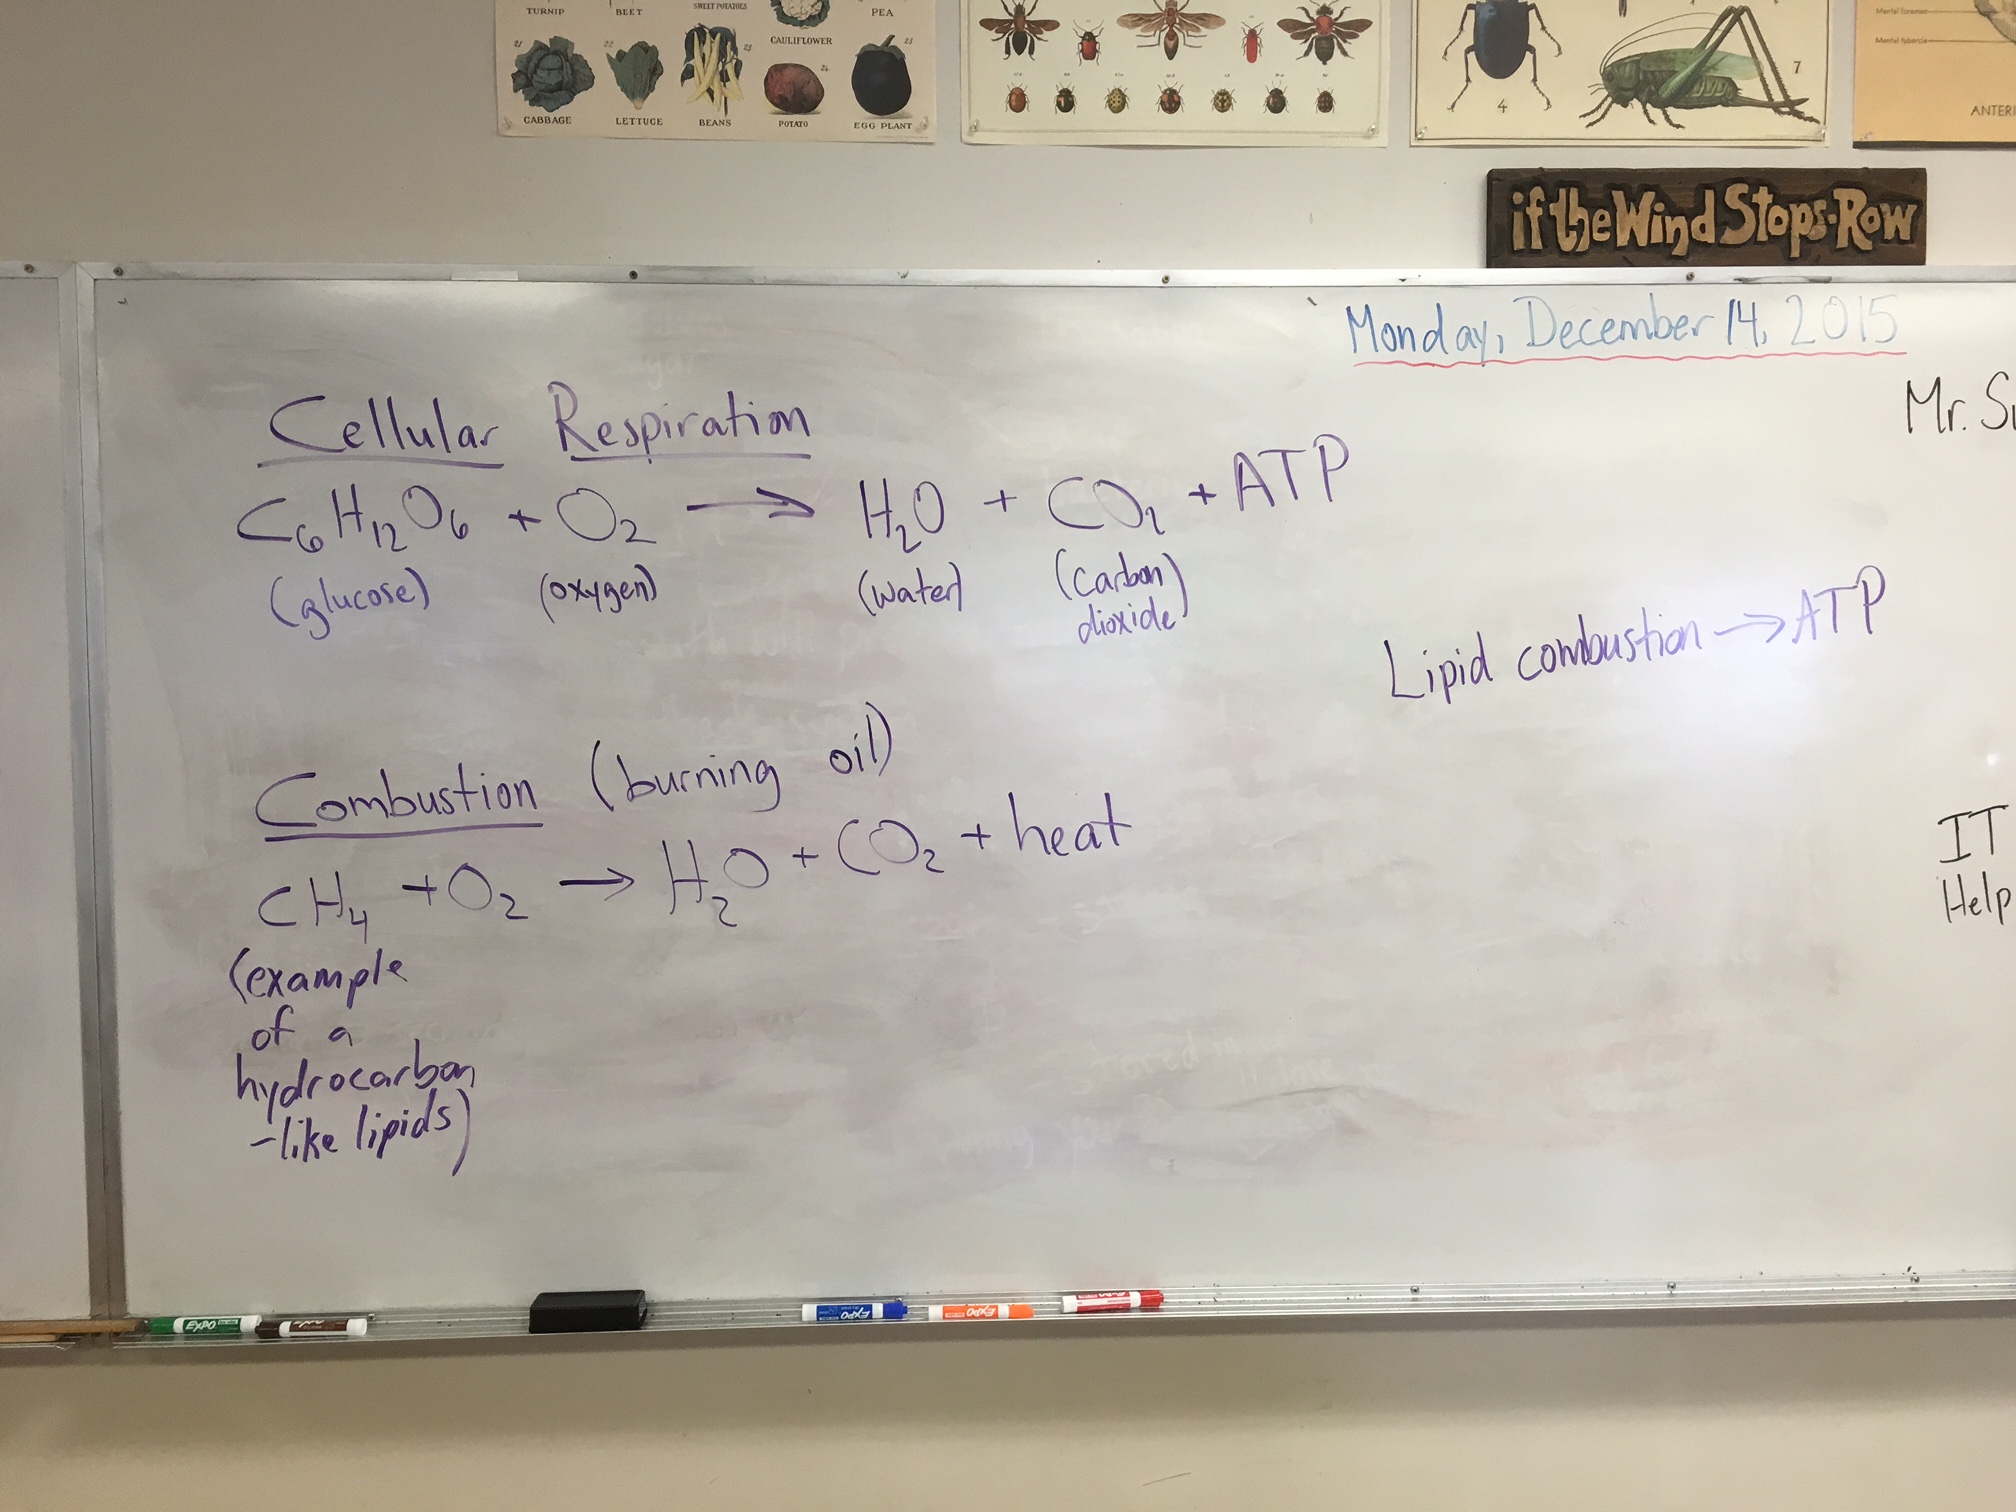 TURNIP BEET SWEET POTATOES PEA
CAULIFLOWER
21 22 23 24 25
CABBAGE LETTUCE BEANS POTATO EGG PLANT
4 7
Mental foramen
Mental tubercle
ANTERI
if the Wind Stops-Row
Monday, December 14, 2015
Mr. Su
Cellular Respiration
C6H12O6 + O2 → H2O + CO2 + ATP
(glucose) (oxygen) (water) (carbon
dioxide)
Lipid combustion → ATP
Combustion (burning oil)
CH4 + O2 → H2O + CO2 + heat
(example
of a
hydrocarbon
-like lipids)
IT
Help
EXPO EXPO EXPO EXPO